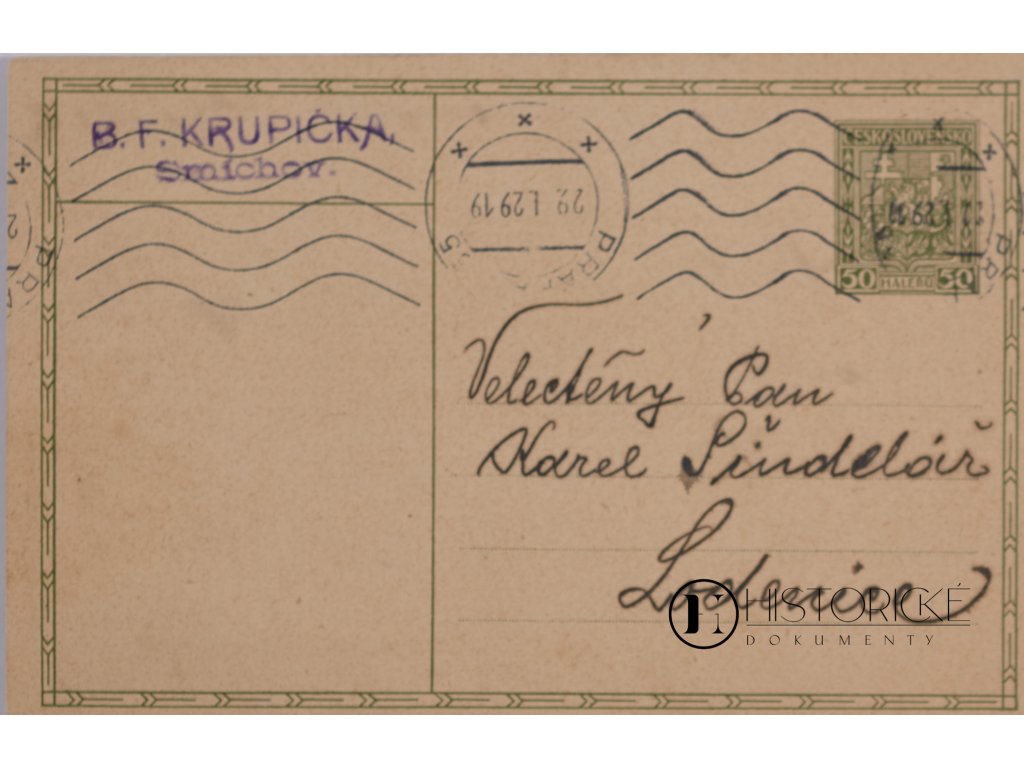 B. F. KRUPIČKA,
Smíchov.
29. I. 29 19
PRAHA 5
ČESKOSLOVENSKO
50 HALÉŘŮ 50
Velectěný Pan
Karel Šindelář
Loděnice
HISTORICKÉ
DOKUMENTY